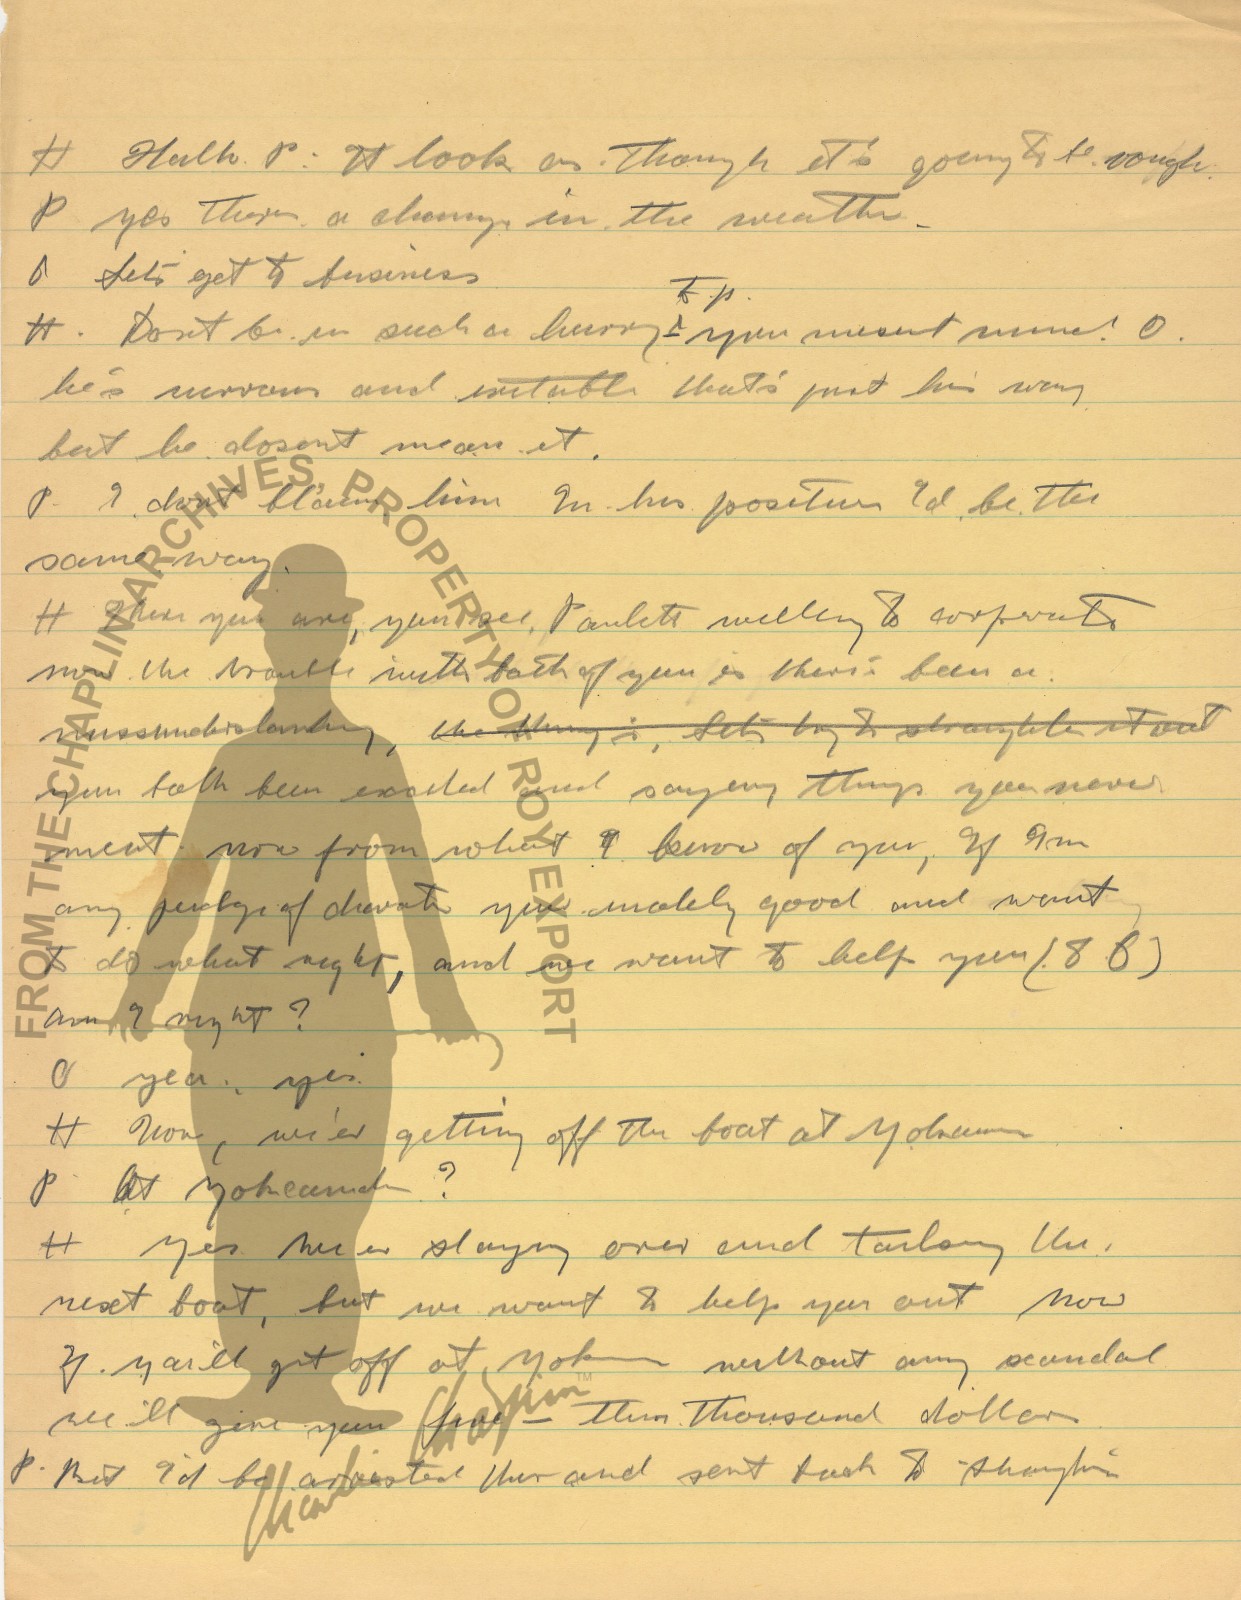 H Hullo P: It look as though it's going to be rough.
P yes theres a change in the weather.
O Let's get to business
to p.
H. Dont be in such a hurry - you mesent mind! O.
he's nervous and iretable that's just his way
but he dosent mean it.
P. I dont blame him In his position I'd be the
same way.
H There you are, you see, Paulette willing to corperate
now the trouble with both of you is there's been a
missunderstanding, the thing is, let's try to straighten it out
you both been excited and saying things you never
ment. now from what I know of you, If I'm
any judge of charater your inately good and want
to do what right, and we want to help you (to O)
am I right?
O yea., yes.
H Now, we're getting off the boat at Yokeama
P At Yokeamah?
H Yes we're staying over and taking the
next boat, but we want to help you out Now
If you'll get off at Yokama without any scandal
we'll give you five – thousand dollars
P. But I'd be arrested there and sent back to Shanghai
FROM THE CHAPLIN ARCHIVES, PROPERTY OF ROY EXPORT
Charlie Chaplin™